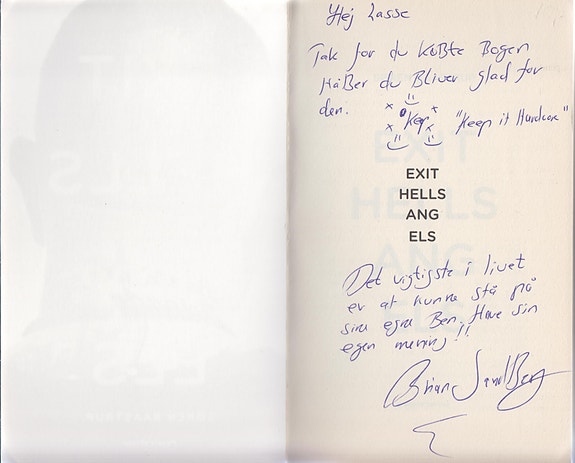 Hej Lasse
Tak for du købte Bogen
Håber du Bliver glad for
den.
"Keep it Hardcore"
EXIT
HELLS
ANG
ELS
Det vigtigste i livet
er at kunne stå på
sine egne Ben. Have sin
egen mening!!
Brian Sandberg